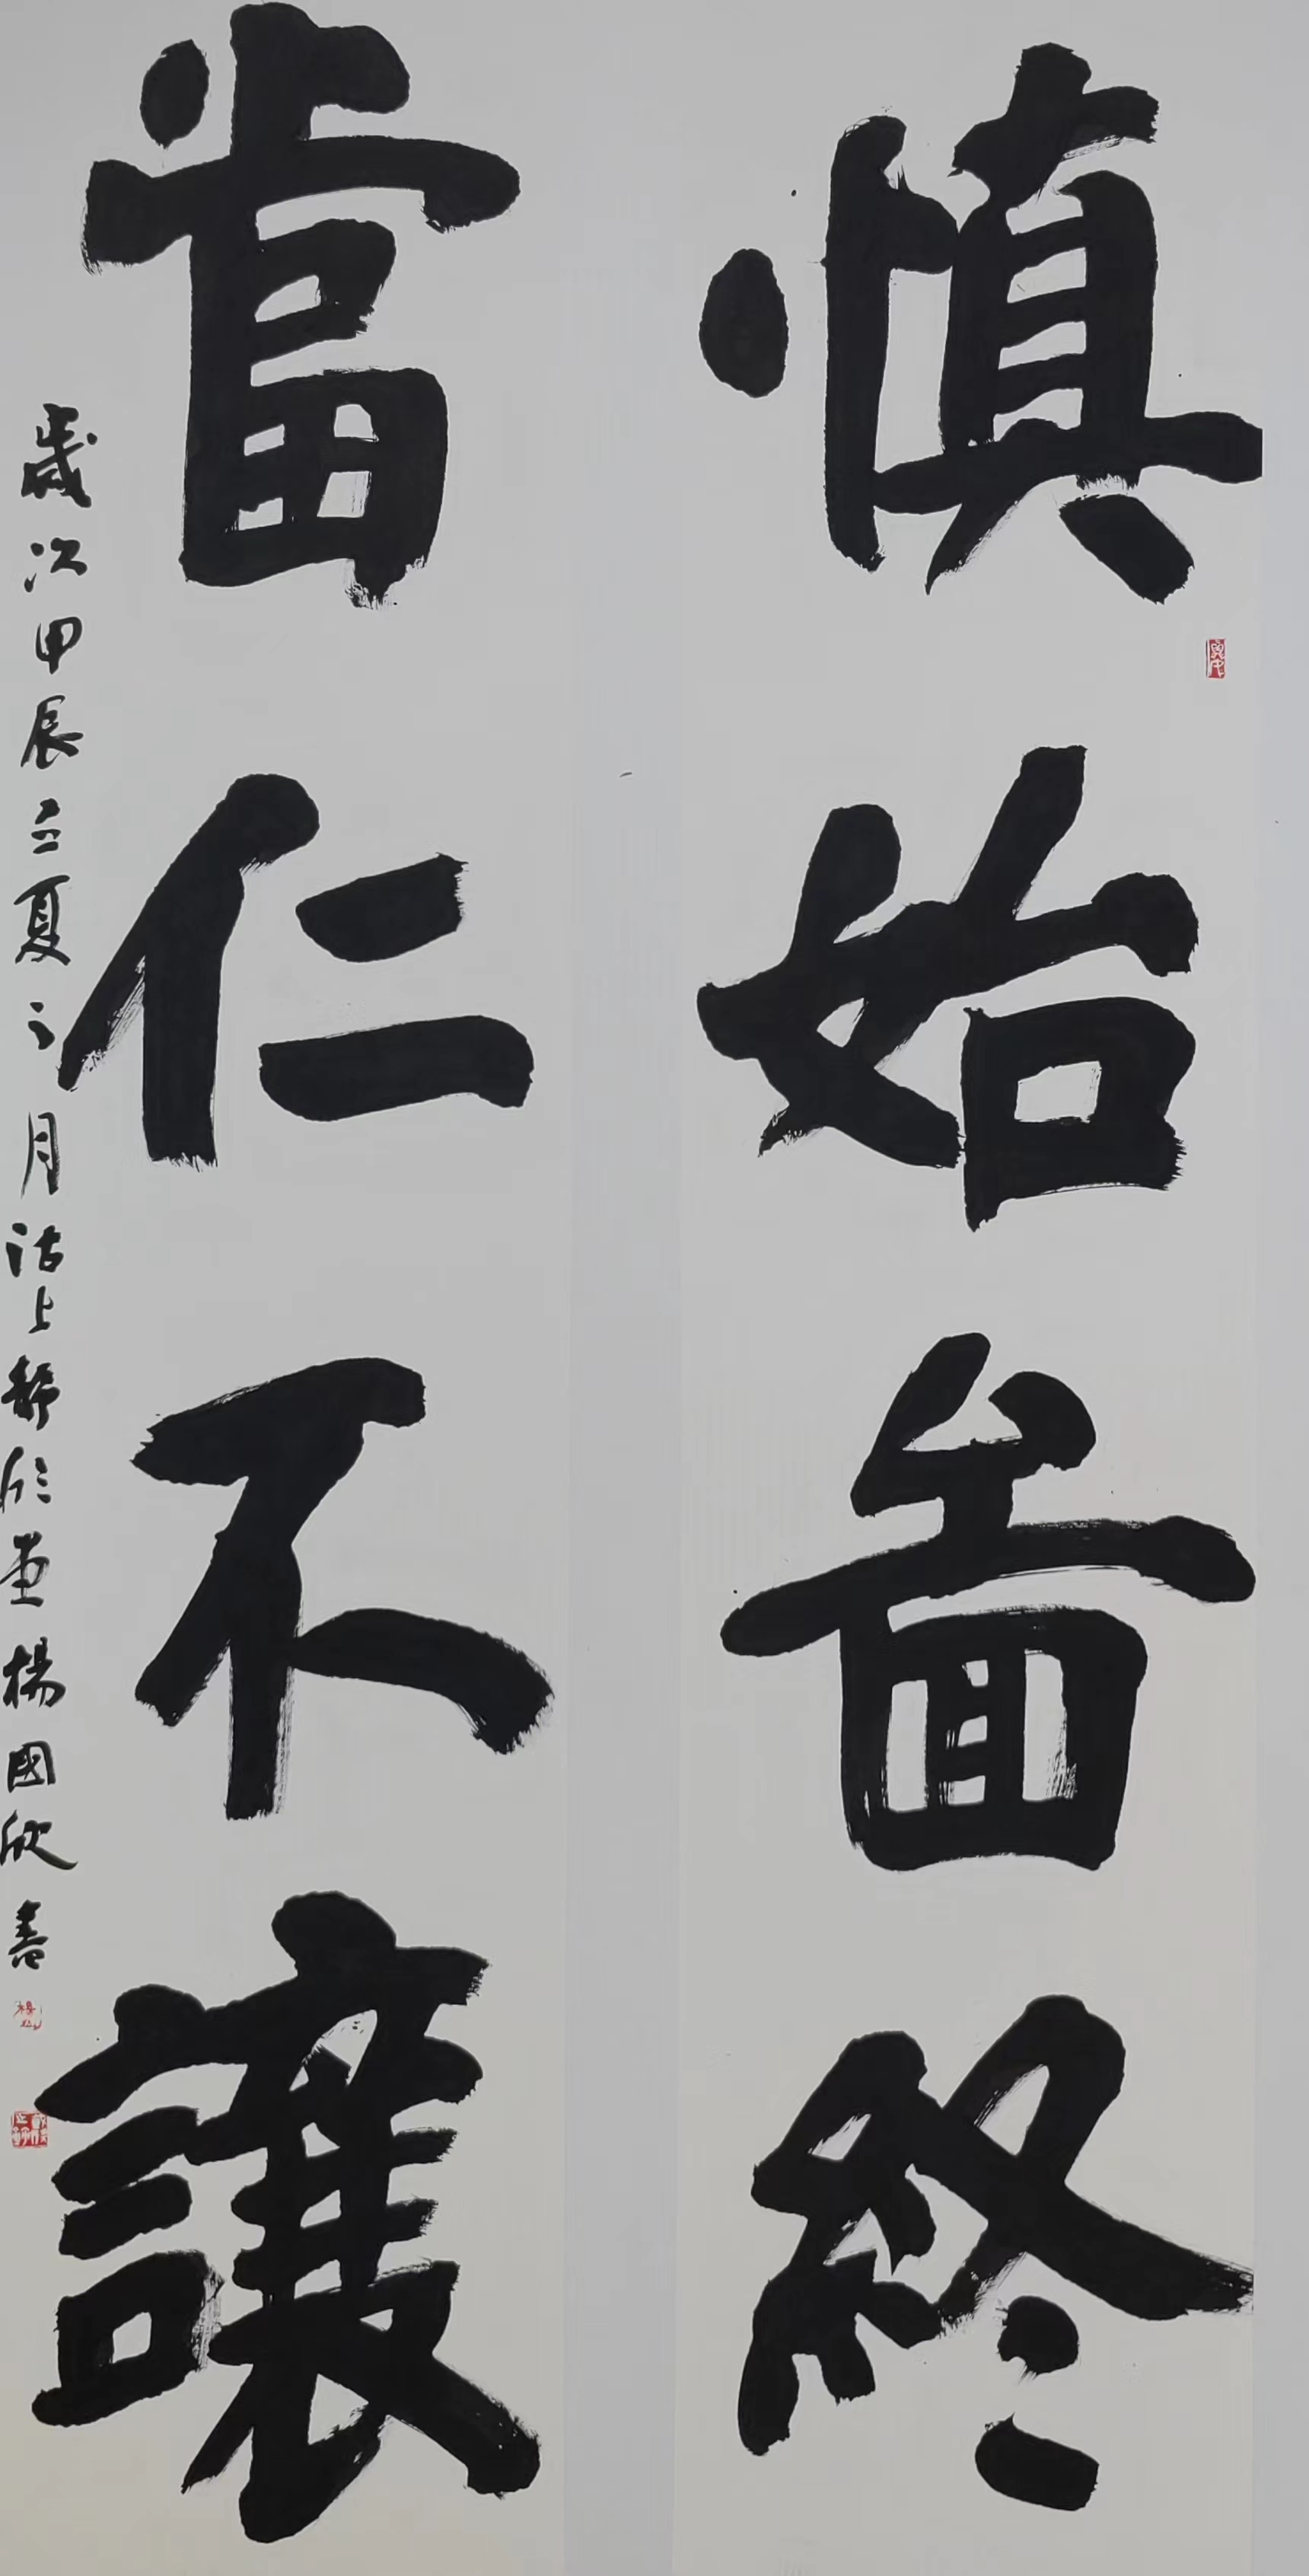 慎始啚終
當仁不讓
歲次甲辰立夏之月沽上靜欣堂楊國欣書